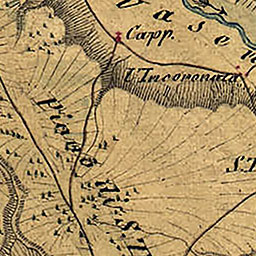 Vasen
Capp.
L'Incoronata
piano di S.
S.